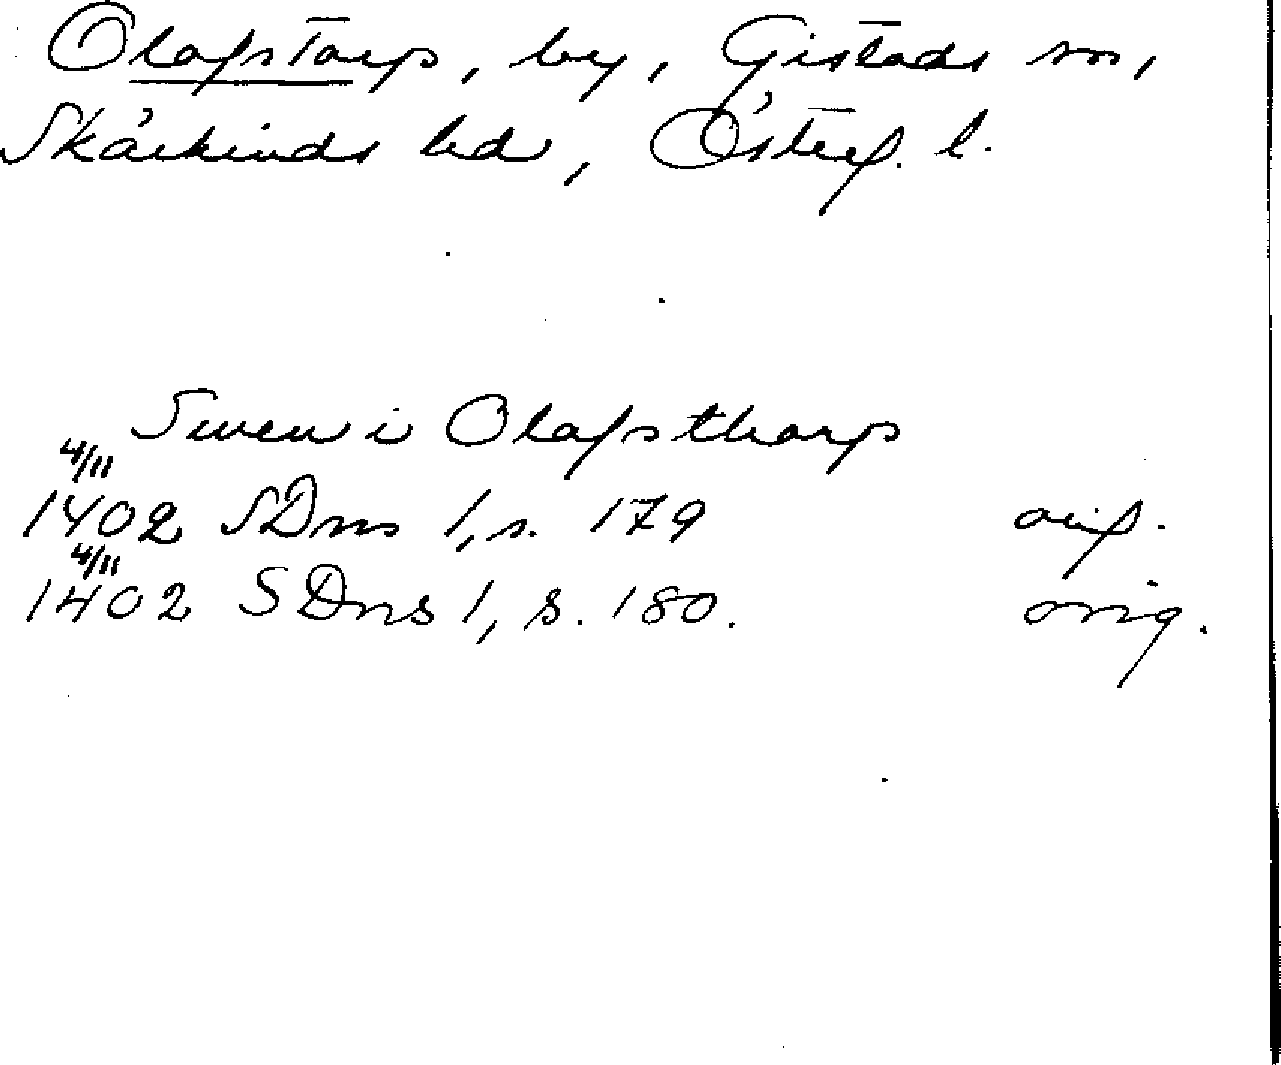 Olafstorp, by, Gistads sn,
Skärkinds hd, Österg. l.
Swen i Olafsthorp
4/11
1402 SDns 1, s. 179 orig.
4/11
1402 SDns 1, s. 180. orig.